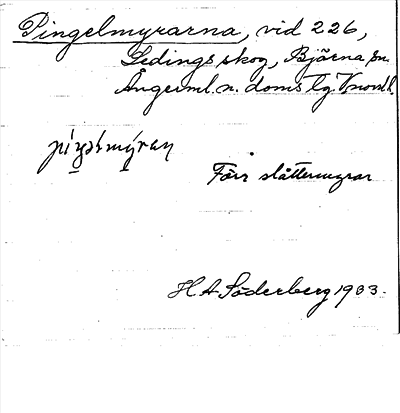 Pingelmyrarna, vid 226,
Ledings skog, Bjärna sn.
Ångerml. n. doms lg. V.norrl.
Förr slåttermyrar
H A Söderberg 1933.